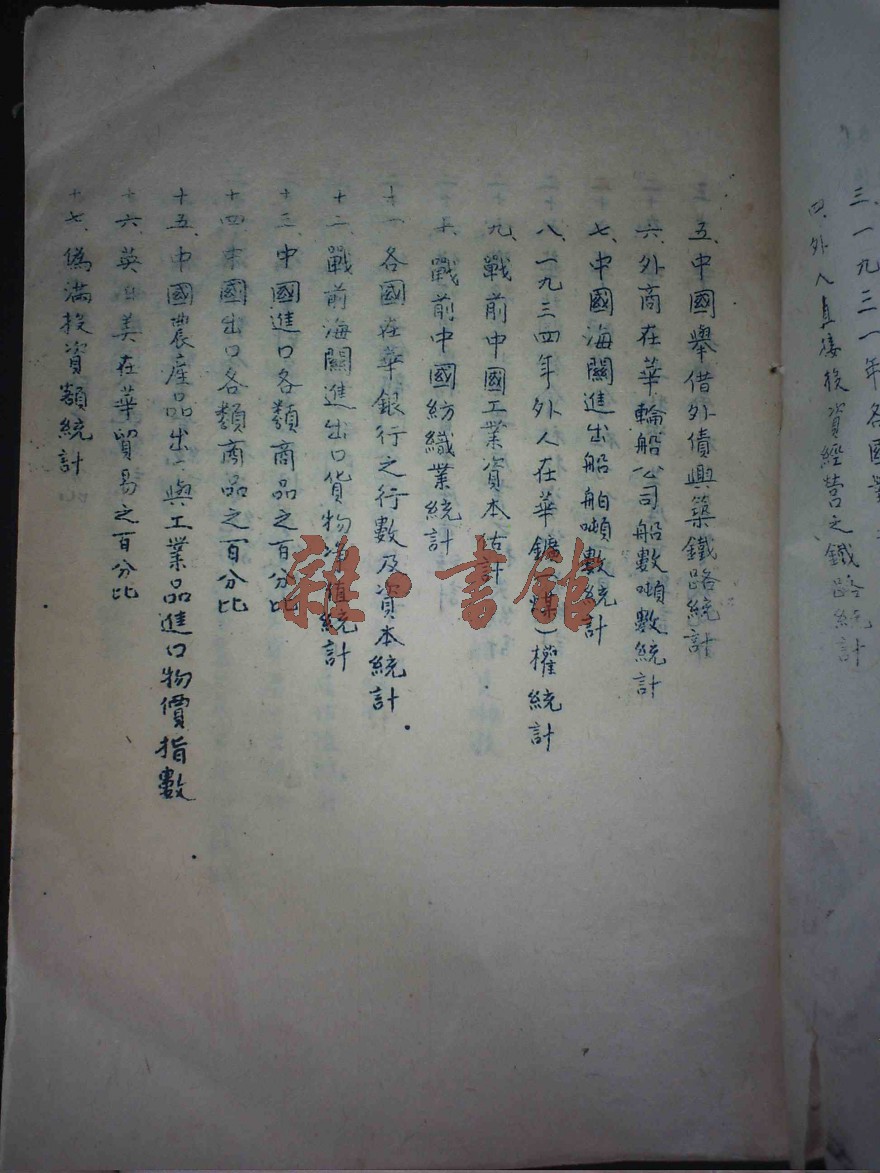 三、一九三一年各國
四、外人直接投資經營之鐵路統計
五、中國舉借外債興築鐵路統計
六、外商在華輪船公司船數噸數統計
七、中國海關進出船舶噸數統計
八、一九三四年外人在華鑛（煤）權統計
九、戰前中國工業資本估計
十、戰前中國紡織業統計
十一、各國在華銀行之行數及資本統計
十二、戰前海關進出口貨物净值統計
十三、中國進口各類商品之百分比
十四、中國出口各類商品之百分比
十五、中國農産品出口與工業品進口物價指數
十六、英日美在華貿易之百分比
十七、偽滿投資額統計
雜·書館